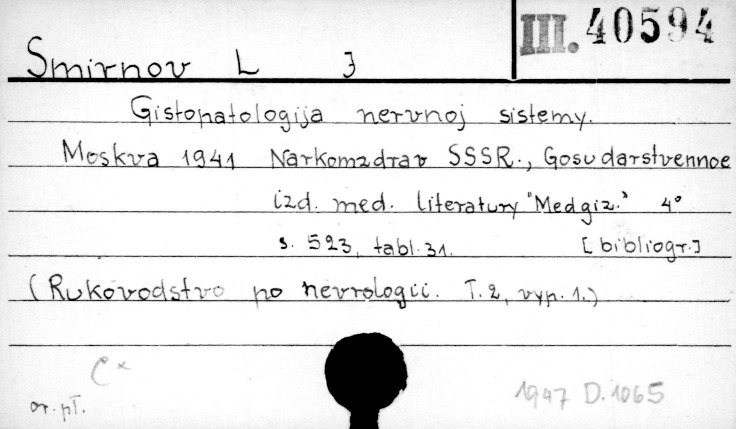 III. 40594
Smirnov L J
Gistopatologija nervnoj sistemy.
Moskva 1941 Narkomzdrav SSSR., Gosudarstvennoe
izd. med. literatury "Medgiz." 4°
s. 523, tabl. 31. [bibliogr.]
(Rukovodstvo po nevrologii. T. 2, vyp. 1.)
C x
1947 D. 1065
or. pT.